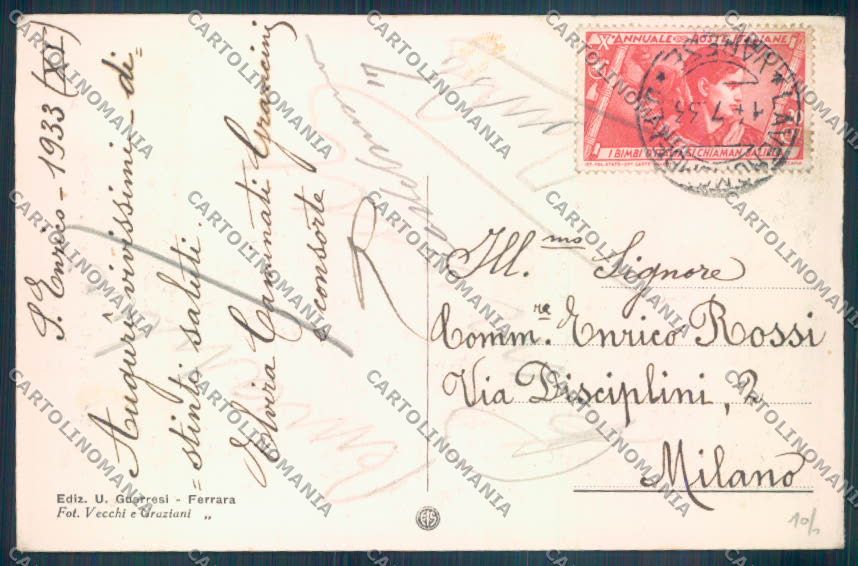 S. Enrico - 1933 (XI)
Auguri vivissimi - di=
=stinti saluti.
Elvira
e consorte
Ill.mo Signore
Comm.re Enrico Rossi
Via Disciplini, 2
Milano
X° ANNUALE POSTE ITALIANE
I BIMBI D'ITALIA SI CHIAMAN BALILLA
Ediz. U. Guarresi - Ferrara
Fot. Vecchi e Graziani „
CARTOLINOMANIA